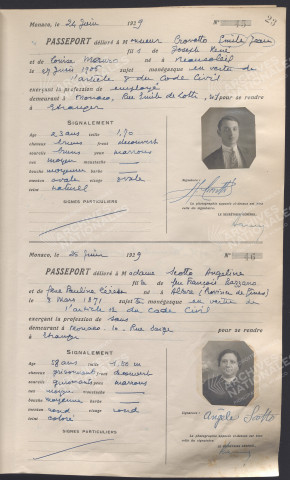 23
Monaco, le 24 Juin 1929 N° 45
PASSEPORT délivré à Monsieur Crovetto Emile Jean
fils de Joseph René
et de Louise né à Beausoleil
le 27 1905 sujet monégasque en vertu de
l'article 8 du Code Civil
exerçant la profession de employé
demeurant à Monaco, Rue Emile de Loth, pour se rendre
Etranger
SIGNALEMENT
Age 23 ans taille 1.70
cheveux bruns front découvert
sourcils bruns yeux marrons
nez moyen moustache
bouche moyenne barbe
menton ovale visage ovale
teint naturel
SIGNES PARTICULIERS
Signature :
La photographie apposée ci-dessus est bien
celle du signataire.
LE SECRÉTAIRE GÉNÉRAL
Monaco, le 26 Juin 1929 N° 46
PASSEPORT délivré à Madame Scotto Angeline
fille de feu François Lazzano
et de feue Pauline née à
le 3 Mars 1871 sujet monégasque en vertu de
l'article du Code Civil
exerçant la profession de sans
demeurant à Monaco pour se rendre
Etranger
SIGNALEMENT
Age 58 ans taille 1.50 m
cheveux grisonnants front découvert
sourcils grisonnants yeux marrons
nez moyen moustache
bouche moyenne barbe
menton rond visage rond
teint coloré
SIGNES PARTICULIERS
Signature :
Angèle Scotto
La photographie apposée ci-dessus est bien
celle du signataire.
LE SECRÉTAIRE GÉNÉRAL